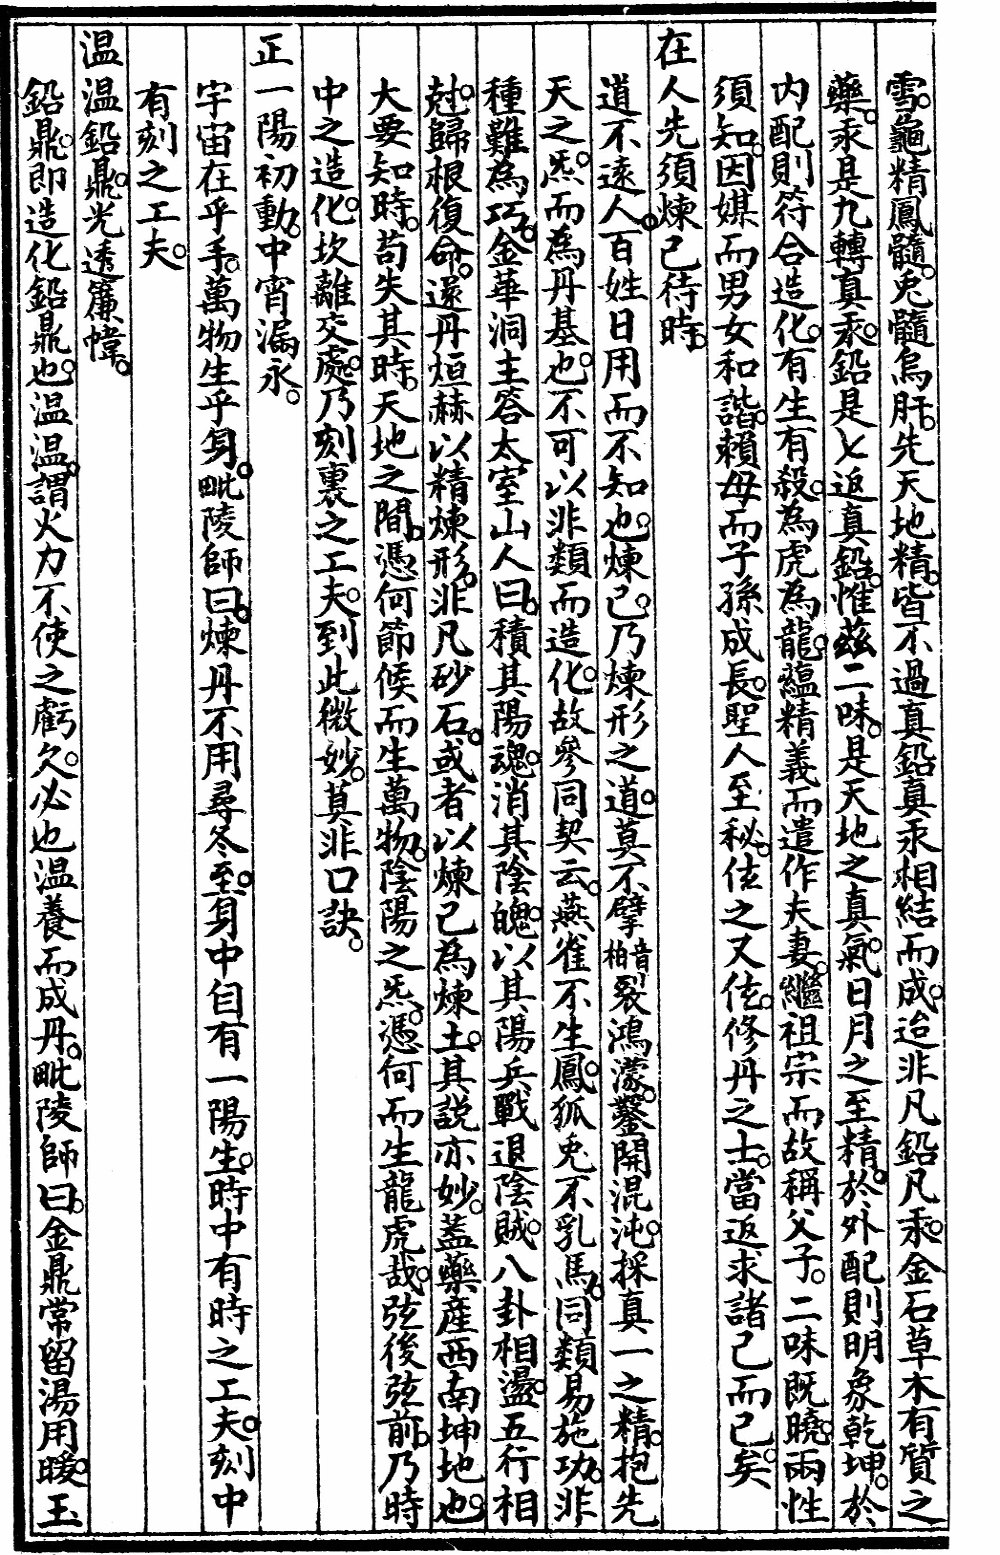 雪。龜精鳳髓。兎髓烏肝。先天地精。皆不過真鉛真汞相結而成。迨非凡鉛凡汞。金石草木有質之
藥。汞是九轉真汞。鉛是七返真鉛。惟茲二味。是天地之真氣。日月之至精。於外配則明象乾坤。於
内配則符合造化。有生有殺。為虎為龍。蘊精義而遣作夫妻。繼祖宗而故稱父子。二味既曉。兩性
須知。因媒而男女和諧。賴母而子孫成長。聖人至秘。㐲之又㐲。修丹之士。當返求諸己而已矣。
在人先須煉己待時。
道不遠人。百姓日用而不知也。煉己。乃煉形之道。莫不擘音柏裂鴻濛。鑿開混沌。採真一之精。抱先
天之炁。而為丹基也。不可以非類而造化。故參同契云。燕雀不生鳳。狐兎不乳馬。同類易施功。非
種難為巧。金華洞主答太室山人曰。積其陽魂。消其陰魄。以其陽兵戰退陰賊。八卦相盪。五行相
尅。歸根復命。還丹烜赫。以精煉形。非凡砂石。或者以煉己為煉土。其説亦妙。蓋藥産西南坤地也。
大要知時。苟失其時。天地之間。憑何節候而生萬物。陰陽之炁。憑何而生龍虎哉。弦後弦前。乃時
中之造化。坎離交處。乃刻裏之工夫。到此微妙。莫非口訣。
正一陽初動。中宵漏永。
宇宙在乎手。萬物生乎身。毗陵師曰。煉丹不用尋冬至。身中自有一陽生。時中有時之工夫。刻中
有刻之工夫。
温温鉛鼎。光透簾幃。
鉛鼎。即造化鉛鼎也。温温。謂火力不使之虧。久必也温養而成丹。毗陵師曰。金鼎常留湯用暖。玉